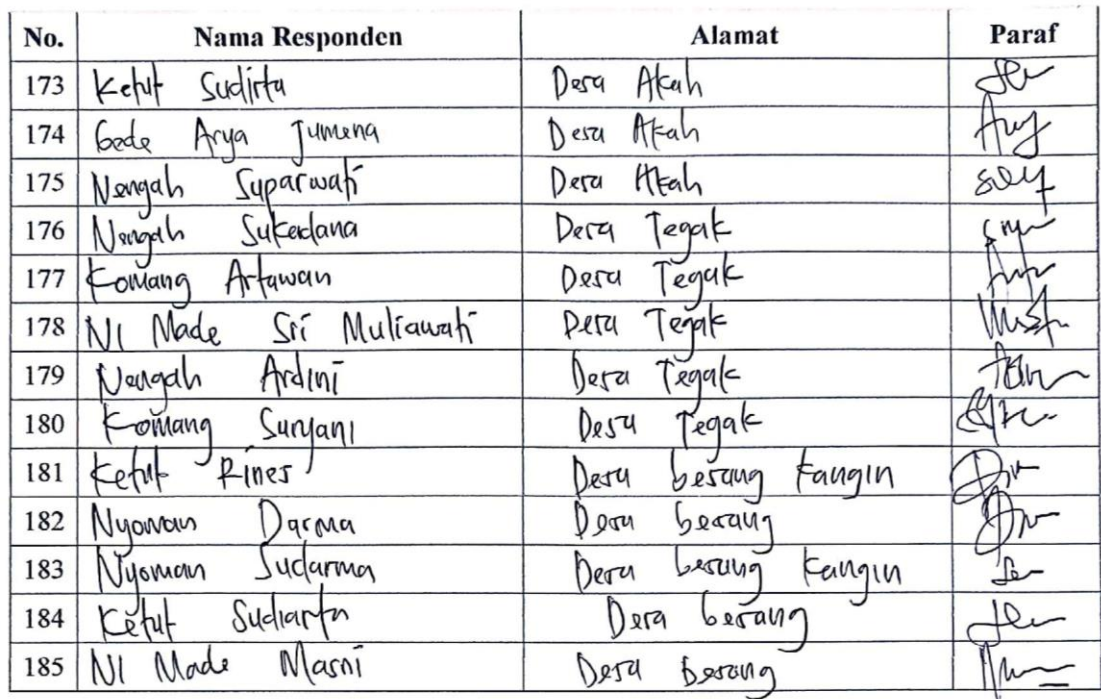 No. Nama Responden Alamat Paraf
173 Ketut Sudirta Desa Akah
174 Gede Arya Jumena Desa Akah
175 Nengah Suparwati Desa Akah
176 Nengah Sukedana Desa Tegak
177 Komang Artawan Desa Tegak
178 NI Made Sri Muliawati Desa Tegak
179 Nengah Ardini Desa Tegak
180 Komang Suryani Desa Tegak
181 Ketut Rines Desa besang kangin
182 Nyoman Darma Desa besang
183 Nyoman Sudarma Desa besang kangin
184 Ketut Sudiarta Desa besang
185 NI Made Masni Desa besang